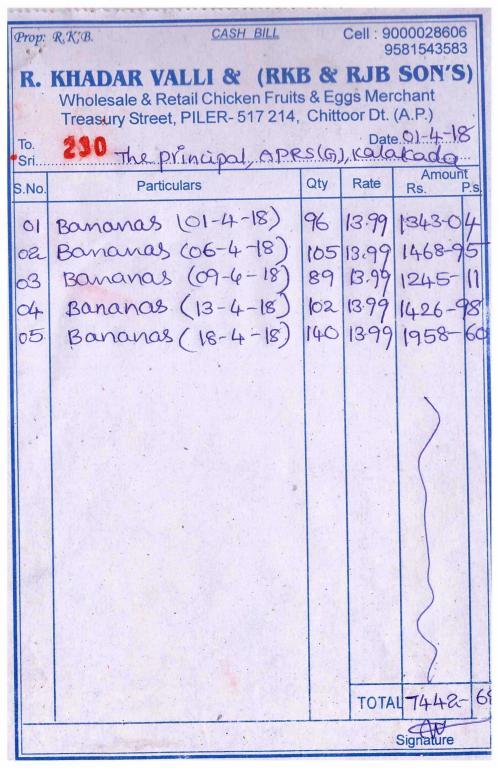 Prop: R.K.B. CASH BILL Cell : 9000028606
9581543583
R. KHADAR VALLI & (RKB & RJB SON'S)
Wholesale & Retail Chicken Fruits & Eggs Merchant
Treasury Street, PILER- 517 214, Chittoor Dt. (A.P.)
To. 230 Date 01-4-18
Sri. The principal, APRS(G), Kalakada
S.No. Particulars Qty Rate Amount
Rs. Ps.
01 Bananas (01-4-18) 96 13.99 1343-04
02 Bananas (06-4-18) 105 13.99 1468-95
03 Bananas (09-4-18) 89 13.99 1245-11
04 Bananas (13-4-18) 102 13.99 1426-98
05 Bananas (18-4-18) 140 13.99 1958-60
TOTAL 7442-68
Signature